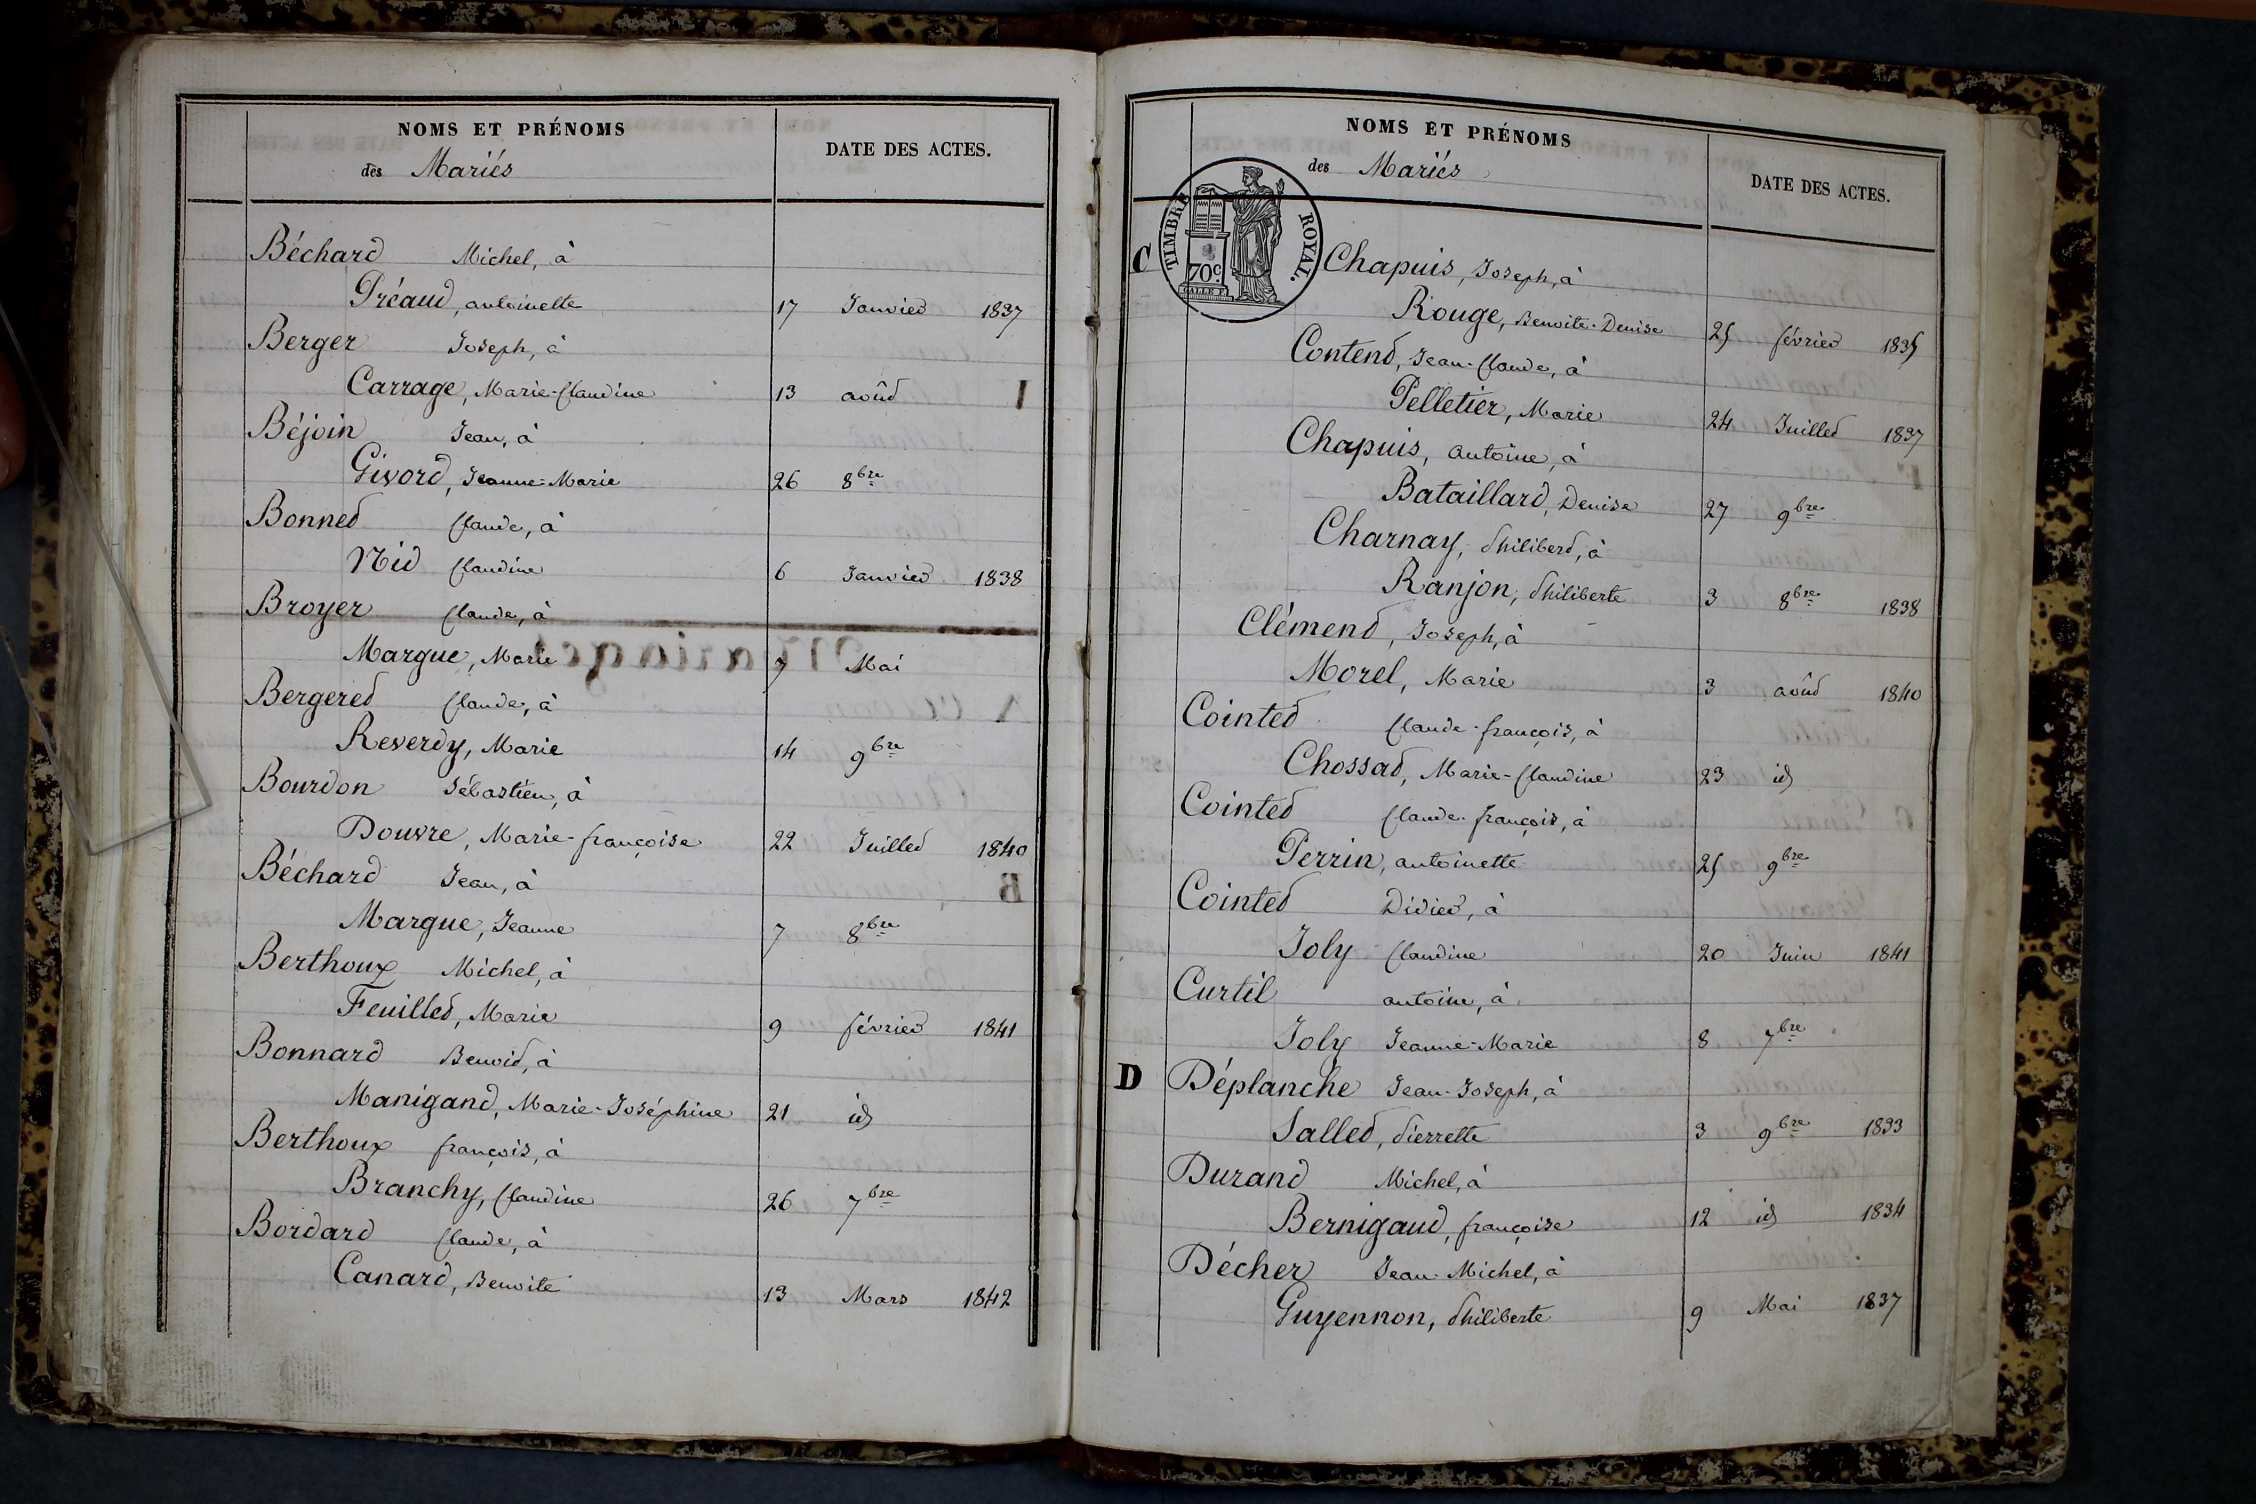 NOMS ET PRÉNOMS
des Mariés
DATE DES ACTES.
Béchard Michel, à
Préaud, antoinette 17 Janvier 1837
Berger Joseph, à
Carrage, Marie-Claudine 13 août
Béjoin Jean, à
Givord, Jeanne-Marie 26 8bre
Bonnet Claude, à
Nid Claudine 6 Janvier 1838
Broyer Claude, à
Margue, Marie 7 Mai
Bergeret Claude, à
Reverdy, Marie 14 9bre
Bourdon Sébastien, à
Douvre, Marie-françoise 22 Juillet 1840
Béchard Jean, à
Margue, Jeanne 7 8bre
Berthoux Michel, à
Feuillet, Marie 9 février 1841
Bonnard Benoit, à
Manigand, Marie-Joséphine 21 id
Berthoux françois, à
Branchy, Claudine 26 7bre
Bordard Claude, à
Canard, Benoite 13 Mars 1842
NOMS ET PRÉNOMS
des Mariés
DATE DES ACTES.
TIMBRE ROYAL.
70c
GALLE F.
C Chapuis, Joseph, à
Rouge, Benoite-Denise 25 février 1835
Content, Jean-Claude, à
Pelletier, Marie 24 Juillet 1837
Chapuis, antoine, à
Bataillard, Denise 27 9bre
Charnay, Philibert, à
Ranjon, Philiberte 3 8bre 1838
Clément, Joseph, à
Morel, Marie 3 août 1840
Cointet Claude-françois, à
Chossat, Marie-Claudine 23 id
Cointet Claude-françois, à
Perrin, antoinette 25 9bre
Cointet Didier, à
Joly Claudine 20 Juin 1841
Curtil antoine, à
Joly Jeanne-Marie 8 7bre
D Déplanche Jean-Joseph, à
Sallet, Pierrette 3 9bre 1833
Durand Michel, à
Bernigaud, françoise 12 id 1834
Décher Jean-Michel, à
Guyennon, Philiberte 9 Mai 1837